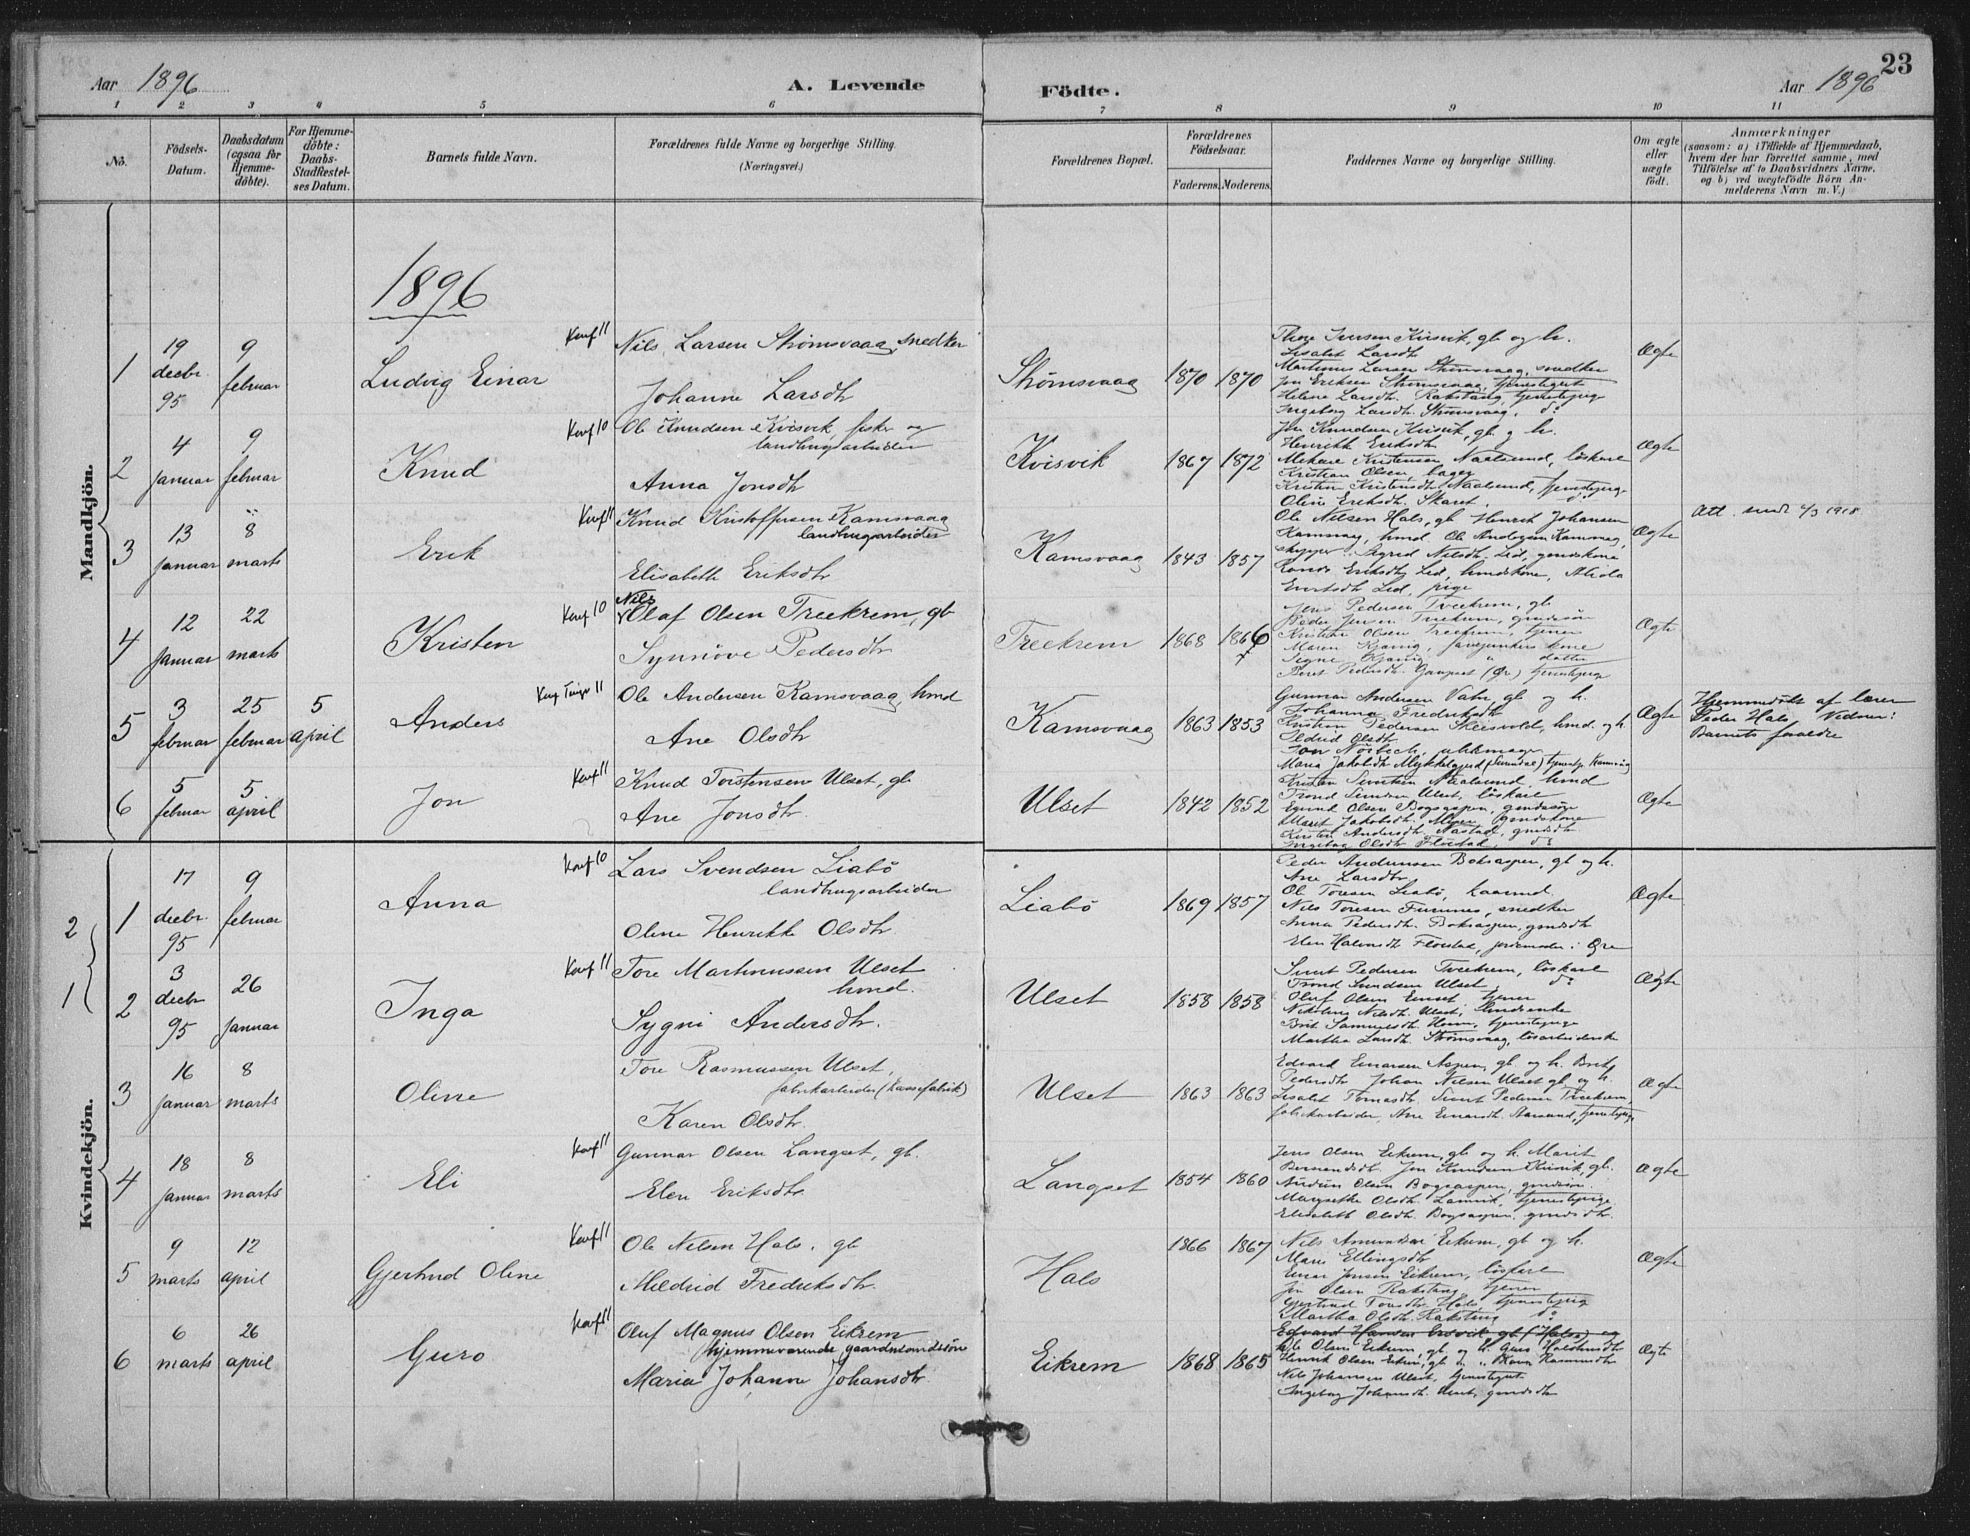 23
Aar 1896
A. Levende
Födte.
Aar 1896
1 2 3 4 5 6 7 8 9 10 11
No.
Födsels-
Datum.
Daabsdatum
(ogsaa for
Hjemme-
döbte).
For Hjemme-
döbte:
Daabs-
Stadfæstel-
ses Datum.
Barnets fulde Navn.
Forældrenes fulde Navne og borgerlige Stilling.
(Næringsvei.)
Forældrenes Bopæl.
Forældrenes
Födselsaar.
Faderens. Moderens.
Faddernes Navne og borgerlige Stilling.
Om ægte
eller
uægte
födt.
Anmærkninger
(saasom: a) i Tilfælde af Hjemmedaab,
hvem der har forrettet samme, med
Tilföielse af to Daabsvidners Navne,
og b) ved uægtefödte Börn An-
melderens Navn m. V.)
Mandkjön.
1896
1
19
decbr
95
9
februar
Ludvig Einar
Konf 11
Nils Larsen Strömsvaag, snedker
Johanne Larsdtr
Strömsvaag
1870 1870
Lisabet Larsdtr
Martinus Larsen Strömsvaag, snedker
Jon Eriksen Strömsvaag, tjenestegut
Helene Larsdtr. Rakstang, tjenestepige
Ingeborg Larsdtr. Strömsvaag, do
Ægte
2
4
januar
9
februar
Knud
Konf 10
Ole Knudsen Kvisvik, fisker og
landbrugsarbeider
Anna Jonsdtr
Kvisvik
1867 1872
Jon Knudsen Kvisvik, gb. og h.
Henrikke Eriksdtr
Kristian Olsen, bager
Oline Eriksdtr. Skaret
Ægte
3
13
januar
8
marts
Erik
Konf 11
Knud Kristoffersen Kamsvaag
landbrugsarbeider
Elisabeth Eriksdtr
Kamsvaag
1843 1857
Ole Nilsen Hals, gb. Henrik Johansen
Kamsvaag, hmd. Ole Andersen Kamsvaag,
skipper. Sigrid Nilsdtr. Lid, gmdskone
Eriksdtr Lid, hmdskone,
Lid, pige
Ægte
Att. sendt 4/3 1918
4
12
januar
22
marts
Kristen
Konf 10
Nils
Olaf Olsen Treekrem, gb
Synnöve Pedersdtr
Treekrem
1868 1866
Jens Pedersen Treekrem, gb
Peder Jensen Treekrem, gmdssön
Kristen Olsen Treekrem, tjener
Maren Kjönig,
Signe Kjönig " datter
Beret Pedersdtr. (Öre) tjenestepige
Ægte
5
3
februar
25
februar
5
april
Anders
Konf Tingv 11
Ole Andersen Kamsvaag, hmd
Ane Olsdtr
Kamsvaag
1863 1853
Gunnar Andersen Vah, gb og h.
Johanna Frederiksdtr
Kristian Pedersen Skeisvold, hmd. og h.
Ildrid Olsdtr
Jon Nörbech, uhrmager
Maria Jakobsdtr Mykkelgjerd (Sundal) tjenestep Kamsvaag
Ægte
Hjemmedöbt af lærer
Peder Hals. Vidner:
Barnets forældre
6
5
februar
5
april
Jon
Konf 11
Knud Torstensen Ulset, gb
Ane Jonsdtr.
Ulset
1842 1852
Kristen Sivertsen Naalsund hmd
Trond Sivertsen Ulset, löskarl
Olsen Bogsaspen, gmdssön
Marit Jakobsdtr. gmdskone
Kirsten Andersdtr. Nastad, gmdsdtr
Ingebor Olsdtr Flöistad, do
Ægte
Kvindekjön.
2
1
1
17
decbr
95
9
februar
Anna
Konf 10
Lars Svendsen Liabö
landbrugsarbeider
Oline Henrikke Olsdtr
Liabö
1869 1857
Peder Andersen Boksaspen, gb og h.
Ane Larsdtr
Ole Toresen Liabö, kaarmd.
Nils Toresen Furunes, snedker
Anna Pedersdtr. Boksaspen, gmdsdtr
Elen Halvorsdtr Flöistad, jordemoder i Öre
Ægte
2
3
decbr
95
26
januar
Inga
Konf 11
Tore Martinussen Ulset
hmd.
Sygni Andersdtr.
Ulset
1858 1858
Sivert Pedersen Treekrem, löskarl
Trond Sivertsen Ulset do
Oluf Olsen Eikrem tjener
Nikoline Nilsdtr. Ulset,
Brit Samuelsdtr. tjenestepige
Martha Larsdtr. Strömsvaag, lösarbeiderske
Ægte
3
16
januar
8
marts
Oline
Tore Rasmussen Ulset,
fabrikarbeider (kassefabrik)
Karen Olsdtr.
Ulset
1863 1863
Edvard Einarsen Aspen, gb og h. Brit
Pedersdtr Johan Nilsen Ulset gb og h.
Lisabet Tomasdtr. Sivert Pedersen Treekrem,
fabrikarbeider, Ane Einarsdtr. tjenestepige
Ægte
4
18
januar
8
marts
Eli
Konf 11
Gunnar Olsen Langset, gb.
Elen Eriksdtr
Langset
1854 1860
Jens Olsen Eikrem, gb og h. Marit
Jon Knudsen Kvisvik, gb.
Audun Olsen Bogsaspen, gmdssön
Margrethe Olsdtr. tjenestepige
Elisabeth Olsdtr. Bogsaspen, gmdsdtr.
Ægte
5
9
marts
12
april
Gjertrud Oline
Konf 11
Ole Nilsen Hals, gb
Mildrid Frederiksdtr.
Hals
1866 1867
Nils Amundsen Eikrem, gb og h.
Mari Ellingsdtr
Einar Jonsen Eikrem, löskarl
Jon Olsen Rakstang tjener
Gjertrud Hals, tjenestepig
Martha Olsdtr. Rakstang do
Ægte
6
6
marts
26
april
Guro
Konf 11
Oluf Magnus Olsen Eikrem
hjemmeværende gaardmandssön
Maria Johanne Johansdtr.
Eikrem
1868 1865
Ole Olsen Eikrem, gb og h. Guro
Henrik Olsen Eikrem, gb " Rasmusdtr
Nils Johansen Ulset, tjenestegut
Ingeborg Johansdtr. Ulset, gmdsdtr
Ægte